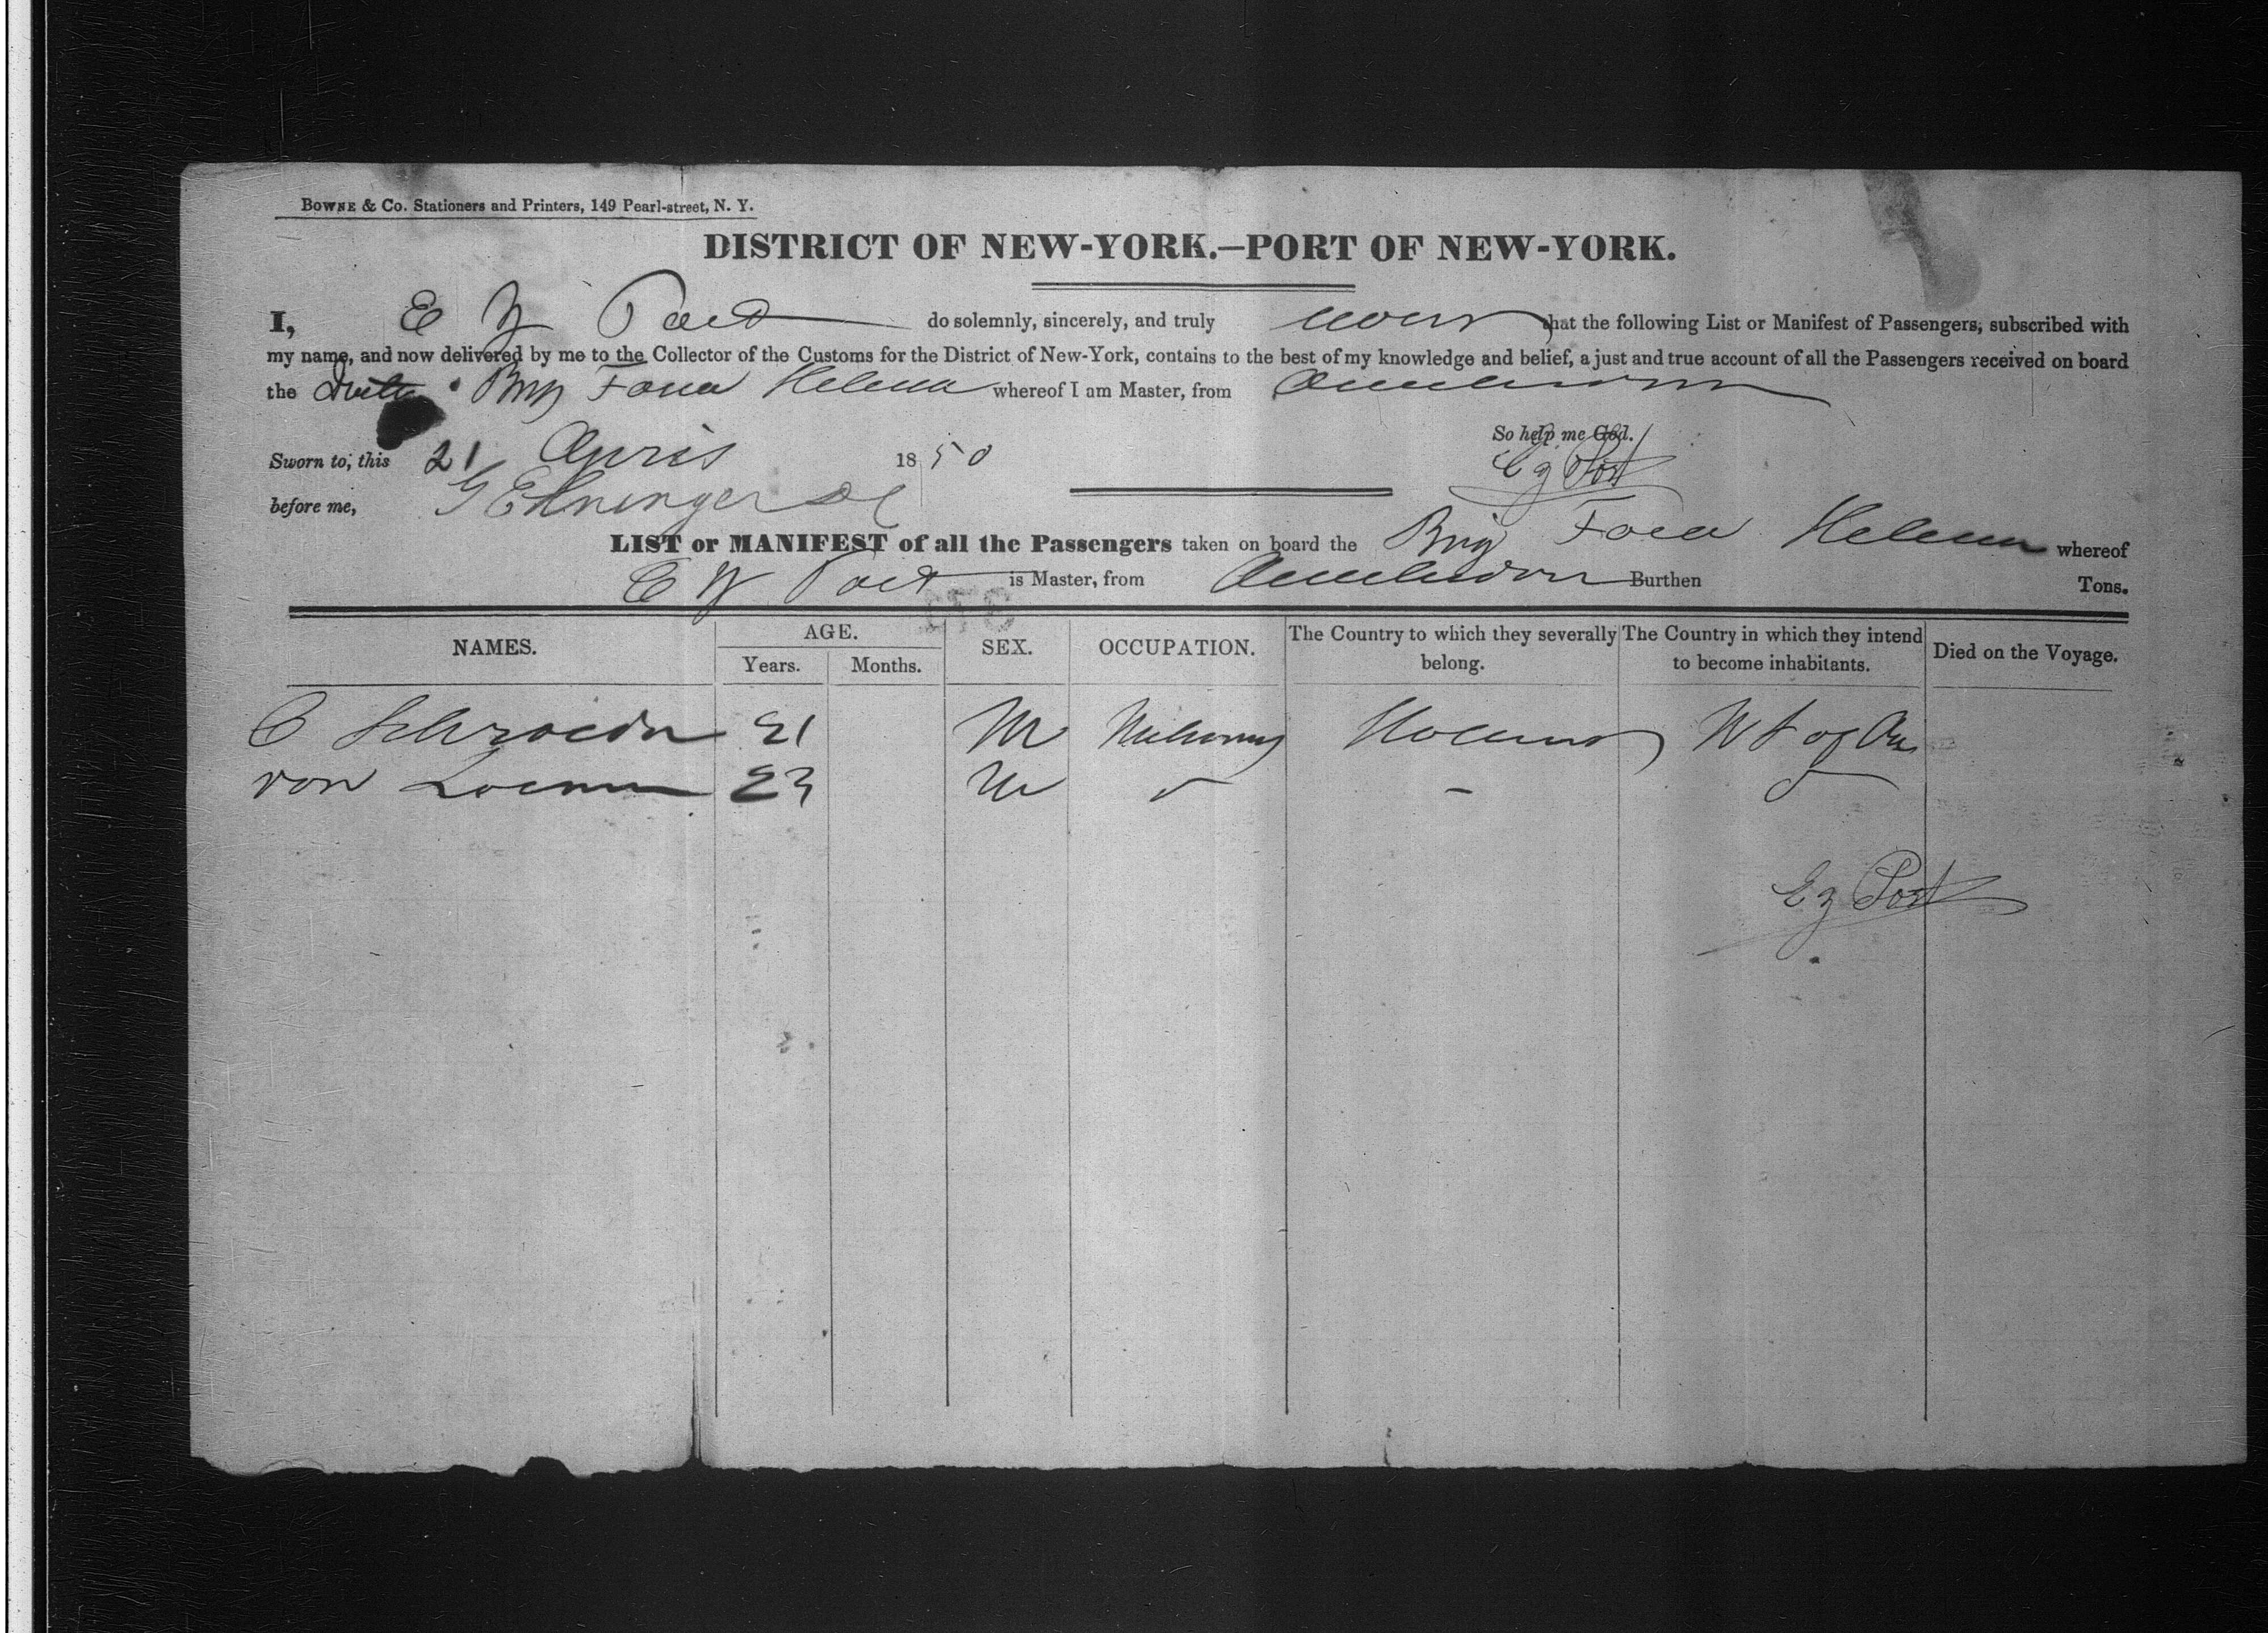 BOWNE & Co. Stationers and Printers, 149 Pearl-street, N. Y.
DISTRICT OF NEW-YORK.—PORT OF NEW-YORK.
I, E Z Post do solemnly, sincerely, and truly swear that the following List or Manifest of Passengers, subscribed with
my name, and now delivered by me to the Collector of the Customs for the District of New-York, contains to the best of my knowledge and belief, a just and true account of all the Passengers received on board
the Brig Helena whereof I am Master, from Amsterdam
So help me God.
Sworn to, this 21 April 1850
E z Post
before me, G Ehninger
LIST or MANIFEST of all the Passengers taken on board the Brig Helena whereof
E Z Post is Master, from Amsterdam Burthen Tons.
NAMES. AGE. SEX. OCCUPATION. The Country to which they severally belong. The Country in which they intend to become inhabitants. Died on the Voyage.
Years. Months.
C Schroeder 21 M Holland
von 23 M
E z Post